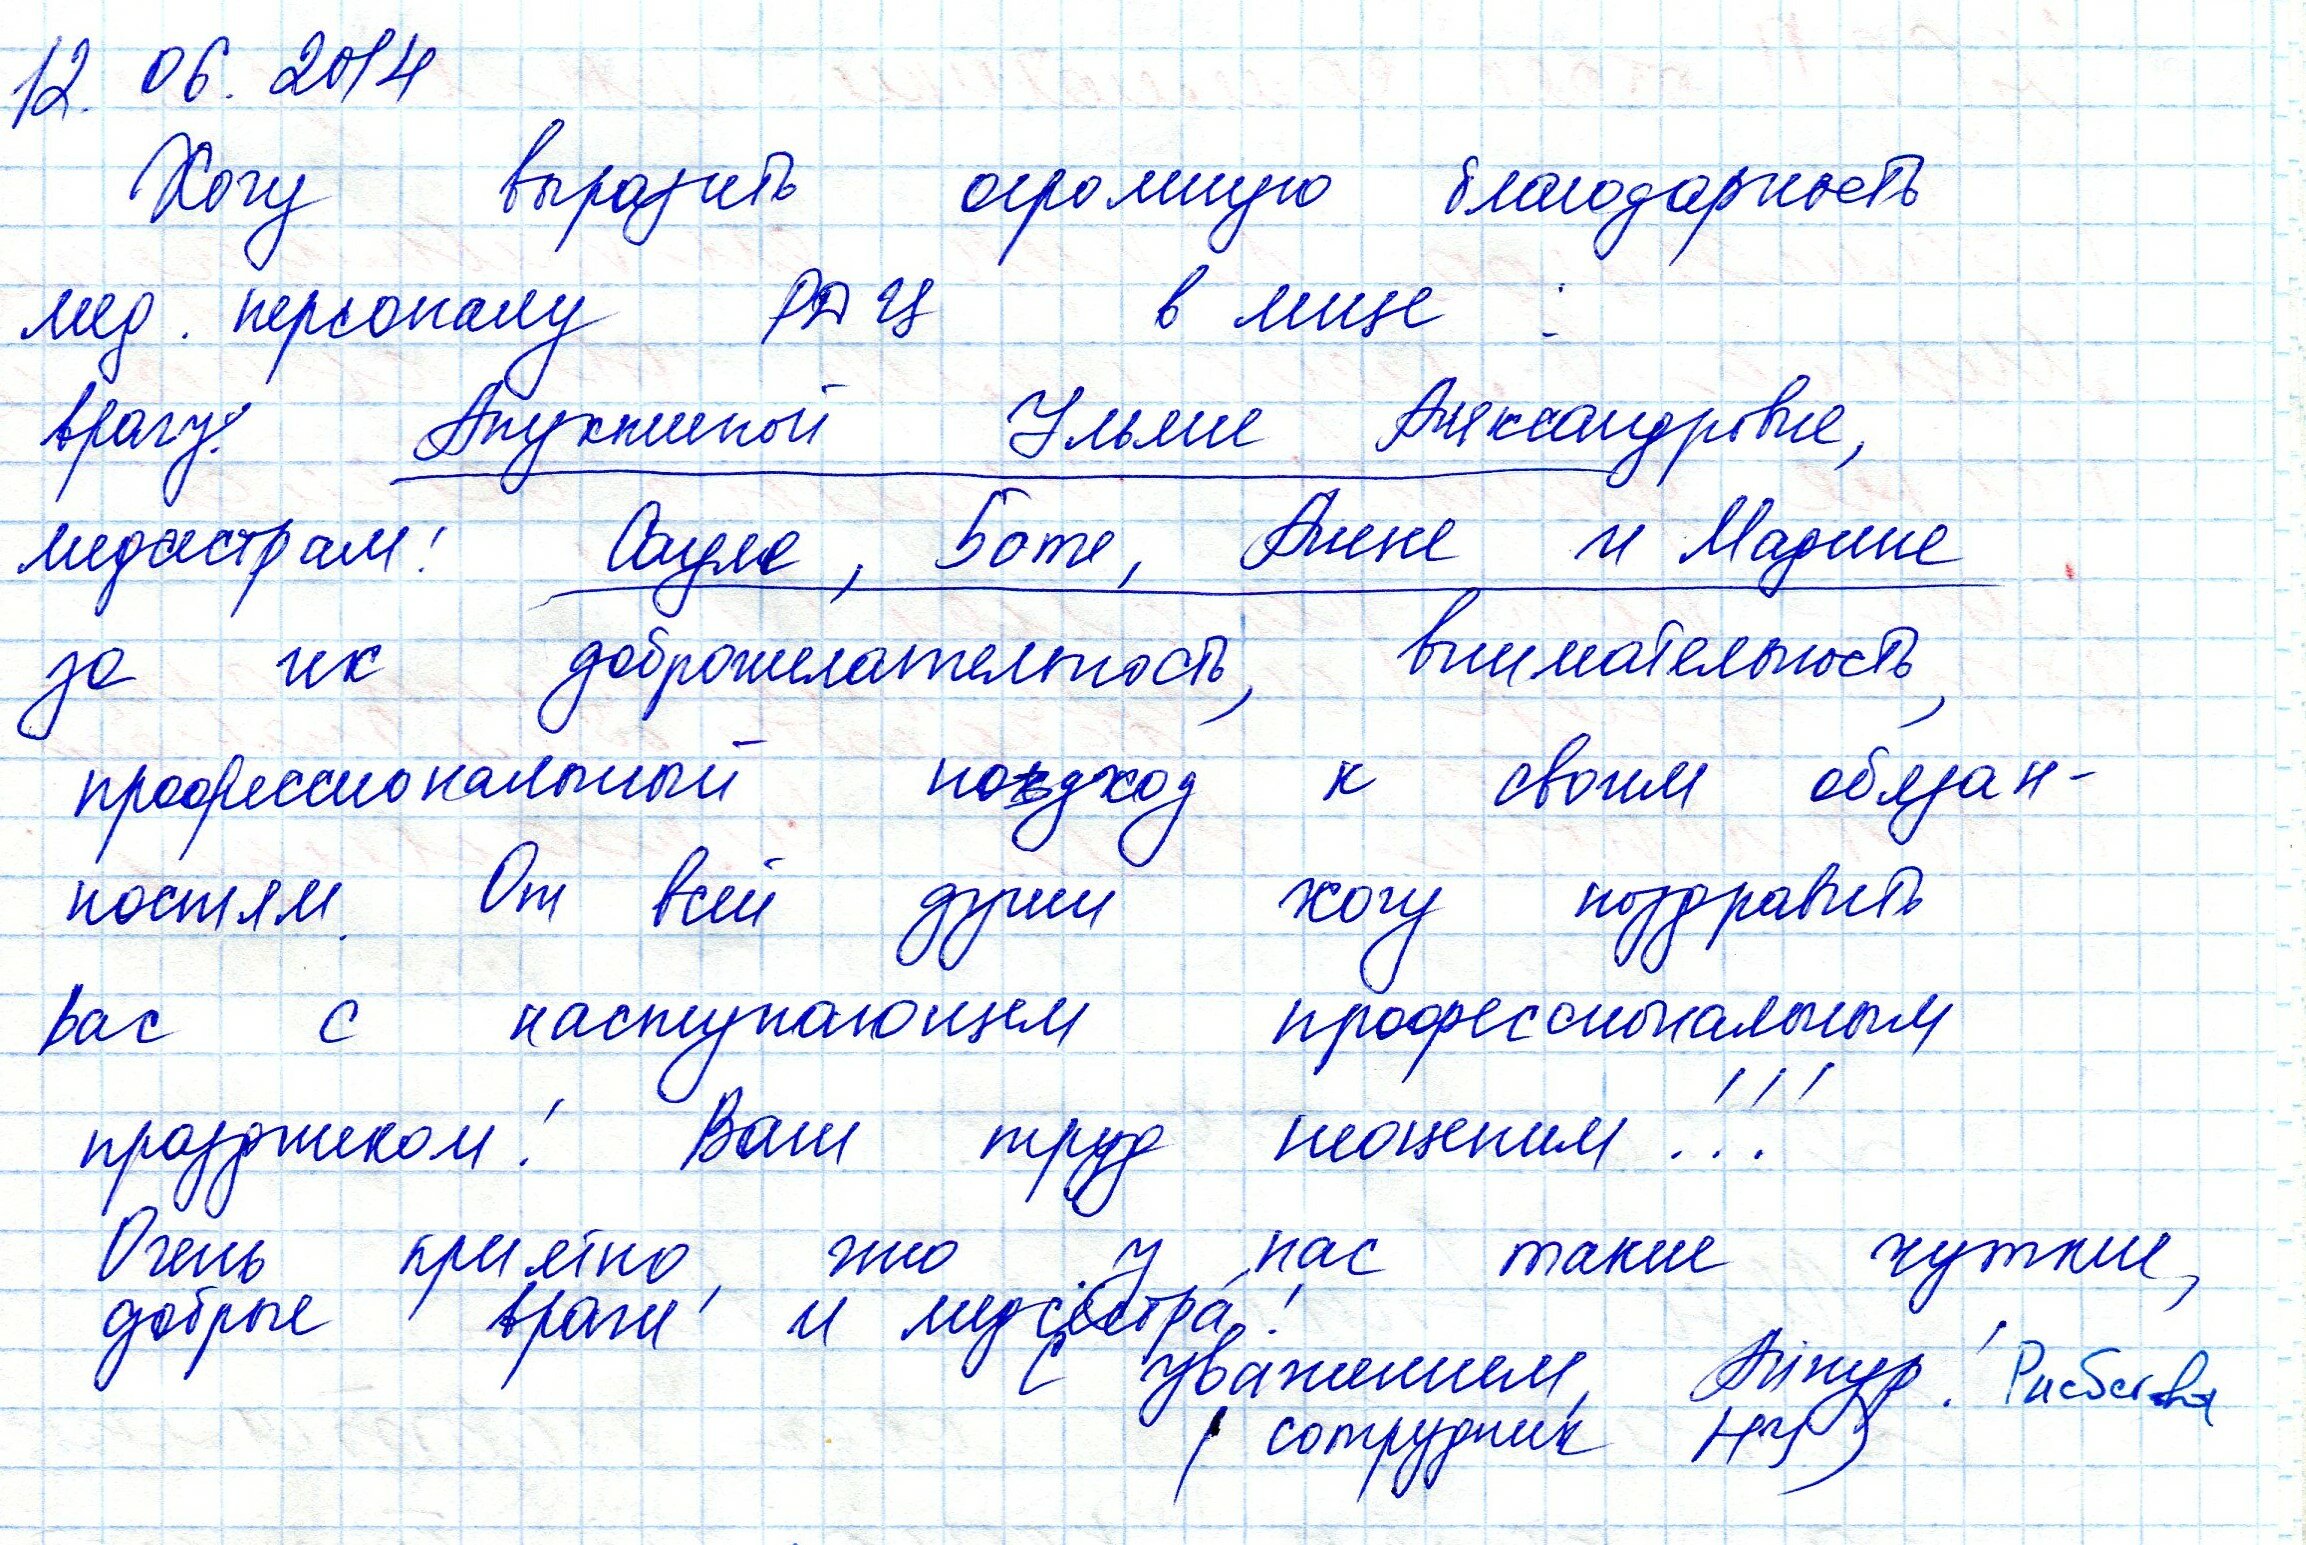 12. 06. 2014
Хочу выразить огромную благодарность
мед. персоналу РДЦ в лице :
врачу: Апукниной Ульяне Александровне,
медсестрам: Сауле, Боте, Анене и Мадине
за их доброжелательность, внимательность,
профессиональный подход к своим обязан-
ностям. От всей души хочу поздравить
Вас с наступающем профессиональным
праздником! Ваш труд неоценим!!!
Очень приятно, что у нас такие чуткие,
добрые врачи и медсестра!
С уважением, Айнур!
( сотрудник НЦ)